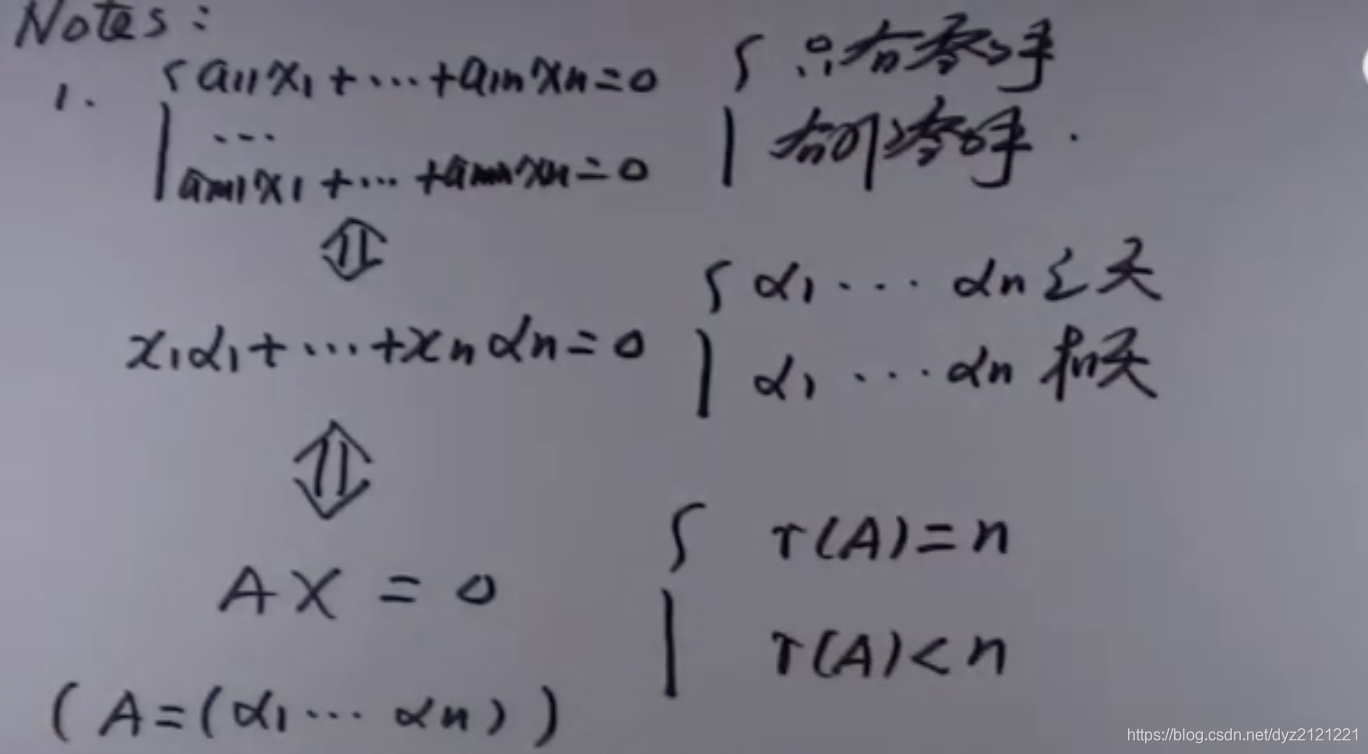 Notes:
1. { a11x1 + ··· + a1nxn = 0 { 只有零解
···
am1x1 + ··· + amnxn = 0 有非零解.
⇕
x1α1 + ··· + xnαn = 0 { α1 ··· αn 无关
α1 ··· αn 相关
⇕
AX = 0 { r(A) = n
r(A) < n
( A = (α1 ··· αn) )
https://blog.csdn.net/dyz2121221